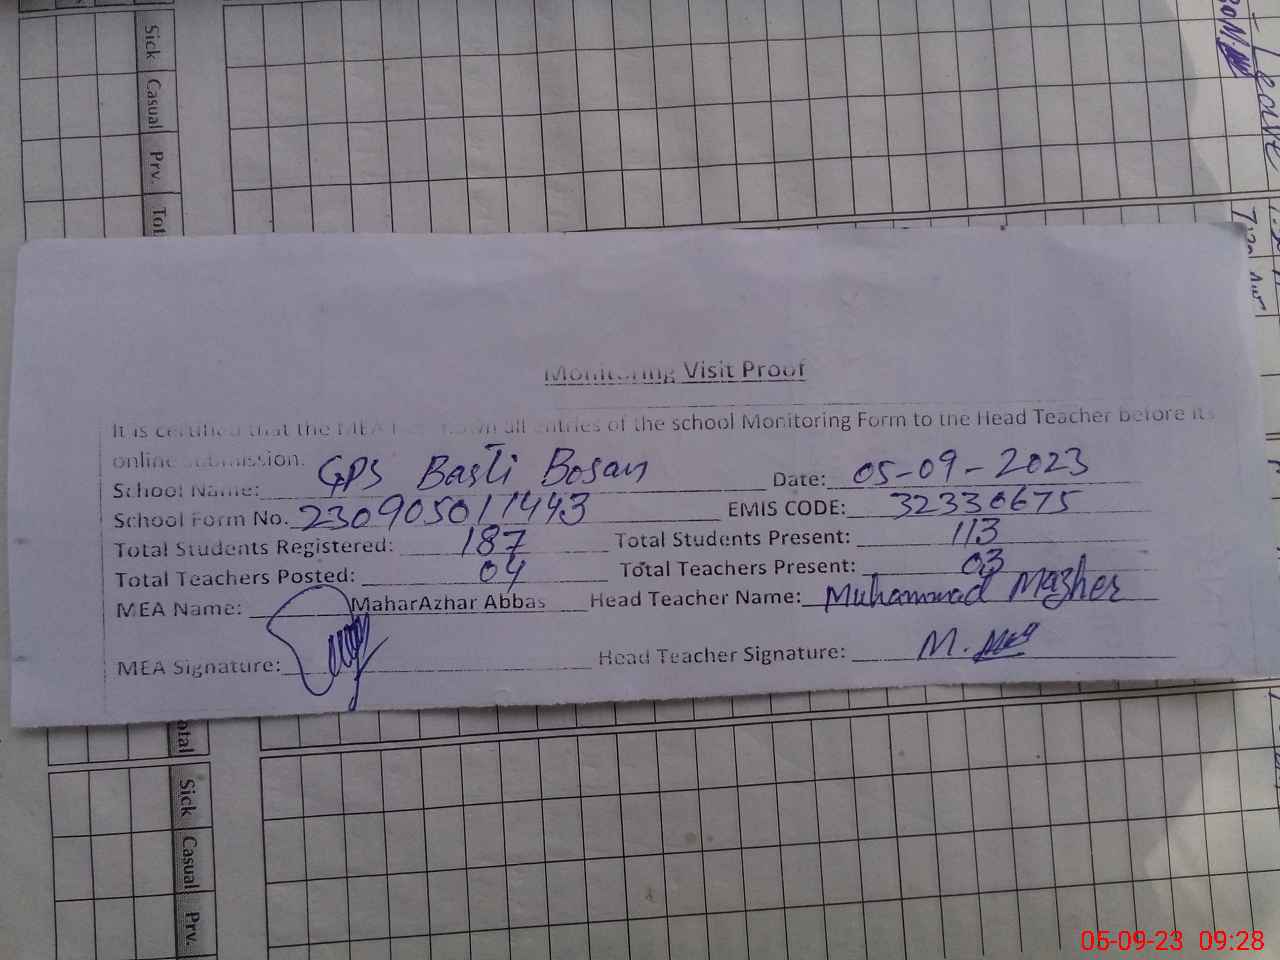 Sick
Casual
Prv.
Leave
Monitoring Visit Proof
It is certified that the MEA has shown all entries of the school Monitoring Form to the Head Teacher before its
online submission.
School Name: GPS Basti Bosan Date: 05-09-2023
School Form No. 230905011443 EMIS CODE: 32330675
Total Students Registered: 187 Total Students Present: 113
Total Teachers Posted: 04 Total Teachers Present: 03
MEA Name: MaharAzhar Abbas Head Teacher Name: Muhammad Mazher
MEA Signature: Head Teacher Signature: M.
Sick
Casual
Prv.
05-09-23 09:28